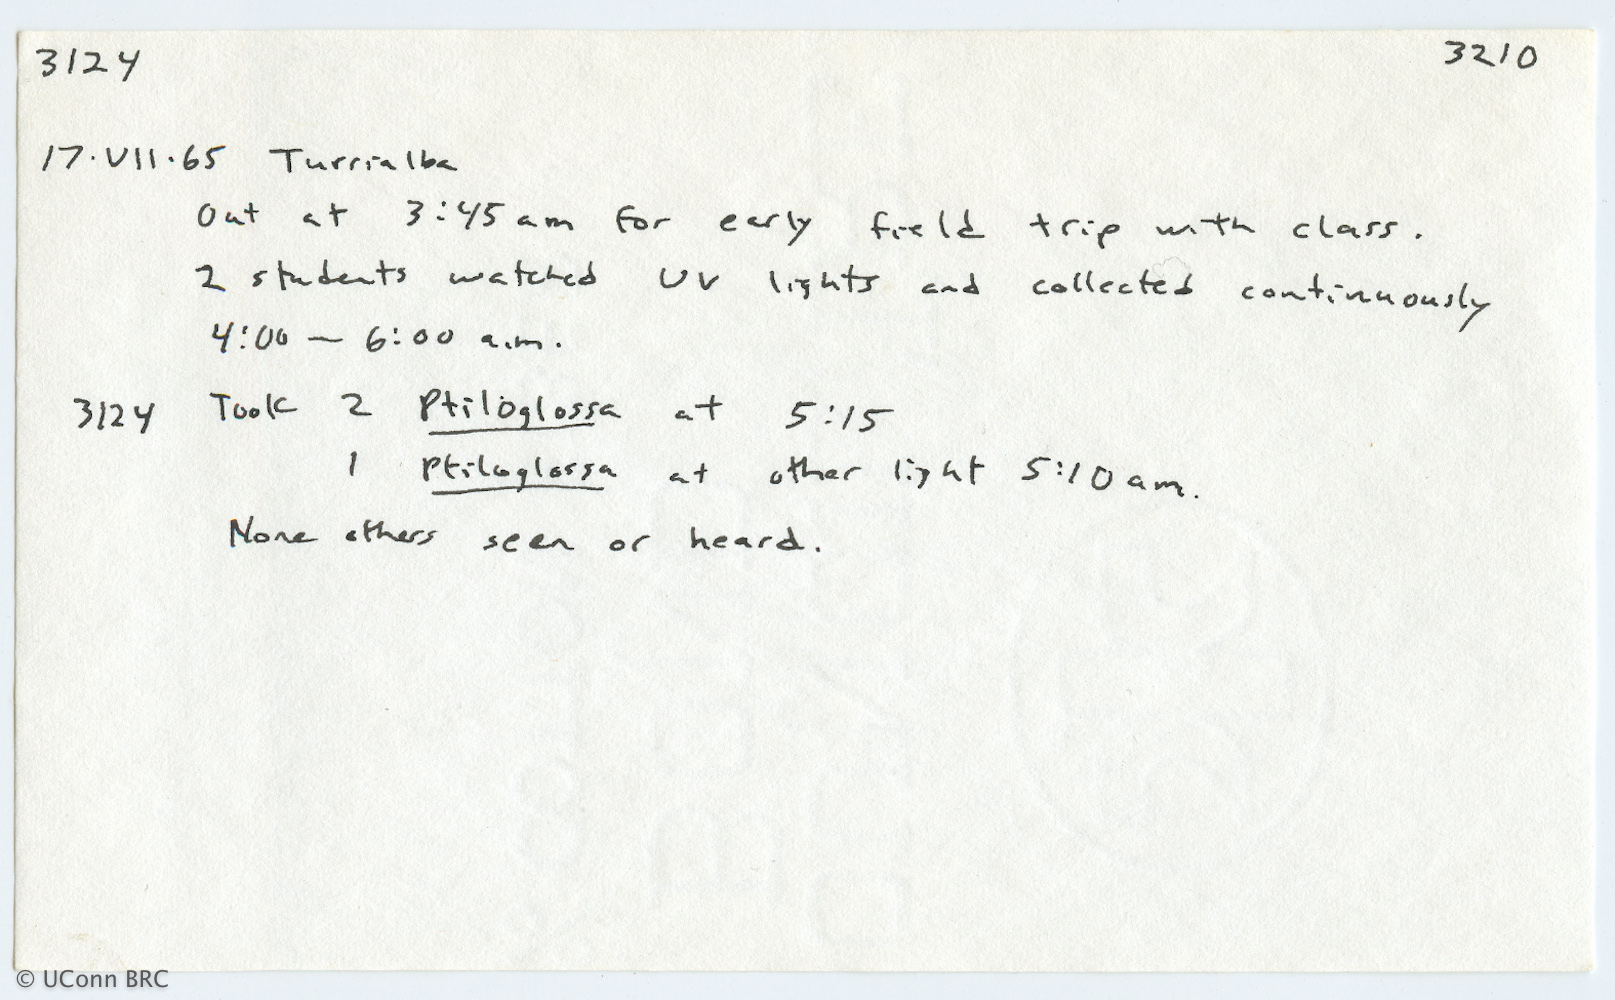 3124 3210
17.VII.65 Turrialba
Out at 3:45 am for early field trip with class.
2 students watched UV lights and collected continuously
4:00 — 6:00 a.m.
3124 Took 2 Ptiloglossa at 5:15
1 Ptiloglossa at other light 5:10 am.
None others seen or heard.
© UConn BRC